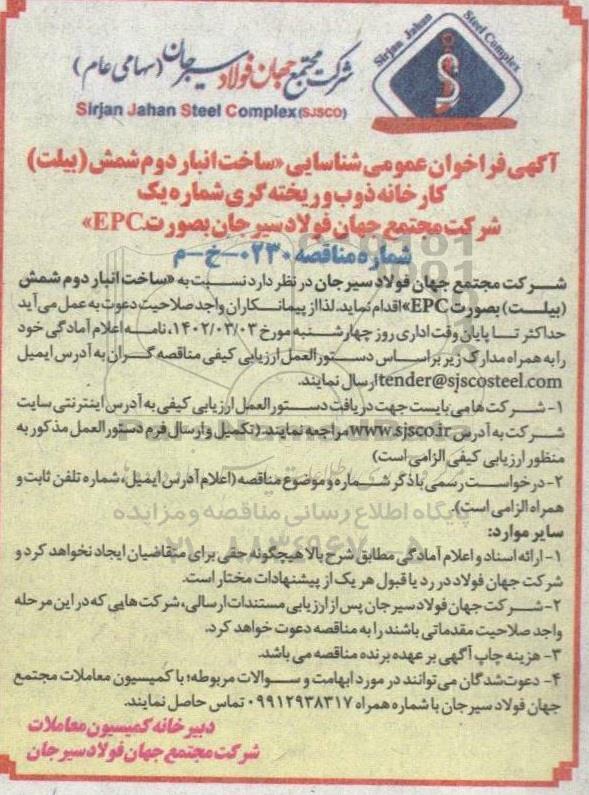 Sirjan Jahan Steel Complex
شرکت مجتمع جهان فولاد سیرجان (سهامی عام)
Sirjan Jahan Steel Complex (SJSCO)
آگهی فراخوان عمومی شناسایی «ساخت انبار دوم شمش (بیلت)
کارخانه ذوب و ریخته گری شماره یک
شرکت مجتمع جهان فولاد سیرجان بصورت EPC»
شماره مناقصه ۰۲۳۰-خ-م
شرکت مجتمع جهان فولاد سیرجان در نظر دارد نسبت به «ساخت انبار دوم شمش
(بیلت) بصورت EPC» اقدام نماید. لذا از پیمانکاران واجد صلاحیت دعوت به عمل می آید
حداکثر تا پایان وقت اداری روز چهارشنبه مورخ ۱۴۰۲/۰۳/۰۳، نامه اعلام آمادگی خود
را به همراه مدارک زیر بر اساس دستورالعمل ارزیابی کیفی مناقصه گران به آدرس ایمیل
tender@sjscosteel.com ارسال نمایند.
۱- شرکت ها می بایست جهت دریافت دستورالعمل ارزیابی کیفی به آدرس اینترنتی سایت
شرکت به آدرس www.sjsco.ir مراجعه نمایند. (تکمیل و ارسال فرم دستورالعمل مذکور به
منظور ارزیابی کیفی الزامی است)
۲- درخواست رسمی با ذکر شماره و موضوع مناقصه (اعلام آدرس ایمیل، شماره تلفن ثابت و
همراه الزامی است).
پایگاه اطلاع رسانی مناقصه و مزایده
سایر موارد:
۰۲۱-۸۸۳۴۹۶۷۰-۵
۱- ارائه اسناد و اعلام آمادگی مطابق شرح بالا هیچگونه حقی برای متقاضیان ایجاد نخواهد کرد و
شرکت جهان فولاد در رد یا قبول هر یک از پیشنهادات مختار است.
۲- شرکت جهان فولاد سیرجان پس از ارزیابی مستندات ارسالی، شرکت هایی که در این مرحله
واجد صلاحیت مقدماتی باشند را به مناقصه دعوت خواهد کرد.
۳- هزینه چاپ آگهی بر عهده برنده مناقصه می باشد.
۴- دعوت شدگان می توانند در مورد ابهامت و سوالات مربوطه؛ با کمیسیون معاملات مجتمع
جهان فولاد سیرجان با شماره همراه ۰۹۹۱۲۹۳۸۳۱۷ تماس حاصل نمایند.
دبیرخانه کمیسیون معاملات
شرکت مجتمع جهان فولاد سیرجان